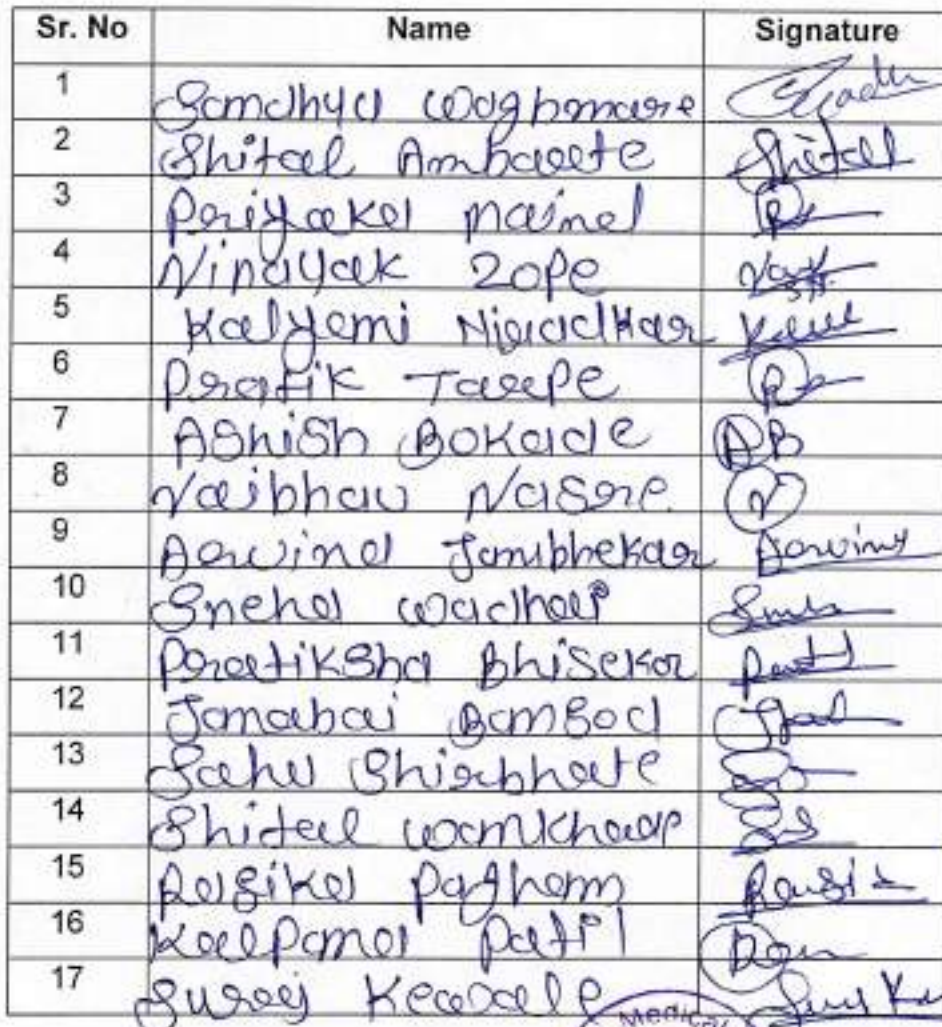 Sr. No Name Signature
1 Sandhya Waghmare
2 Shital Ambarte Shital
3 Priyaka Mainal
4 Vinayak Zope
5 Kalyani Niradkar
6 Pratik Tarpe
7 Ashish Bokade AB
8 Vaibhav Nasre V
9 Aarvind Jambhekar Aarvind
10 Sneha Wadhai
11 Pratiksha Bhisekar
12 Janabai Bansod
13 Sahu Shirbhate
14 Shital Wankhade
15 Rasika Pagham
16 Kalpana Patil
17 Suraj Kewale
Medical